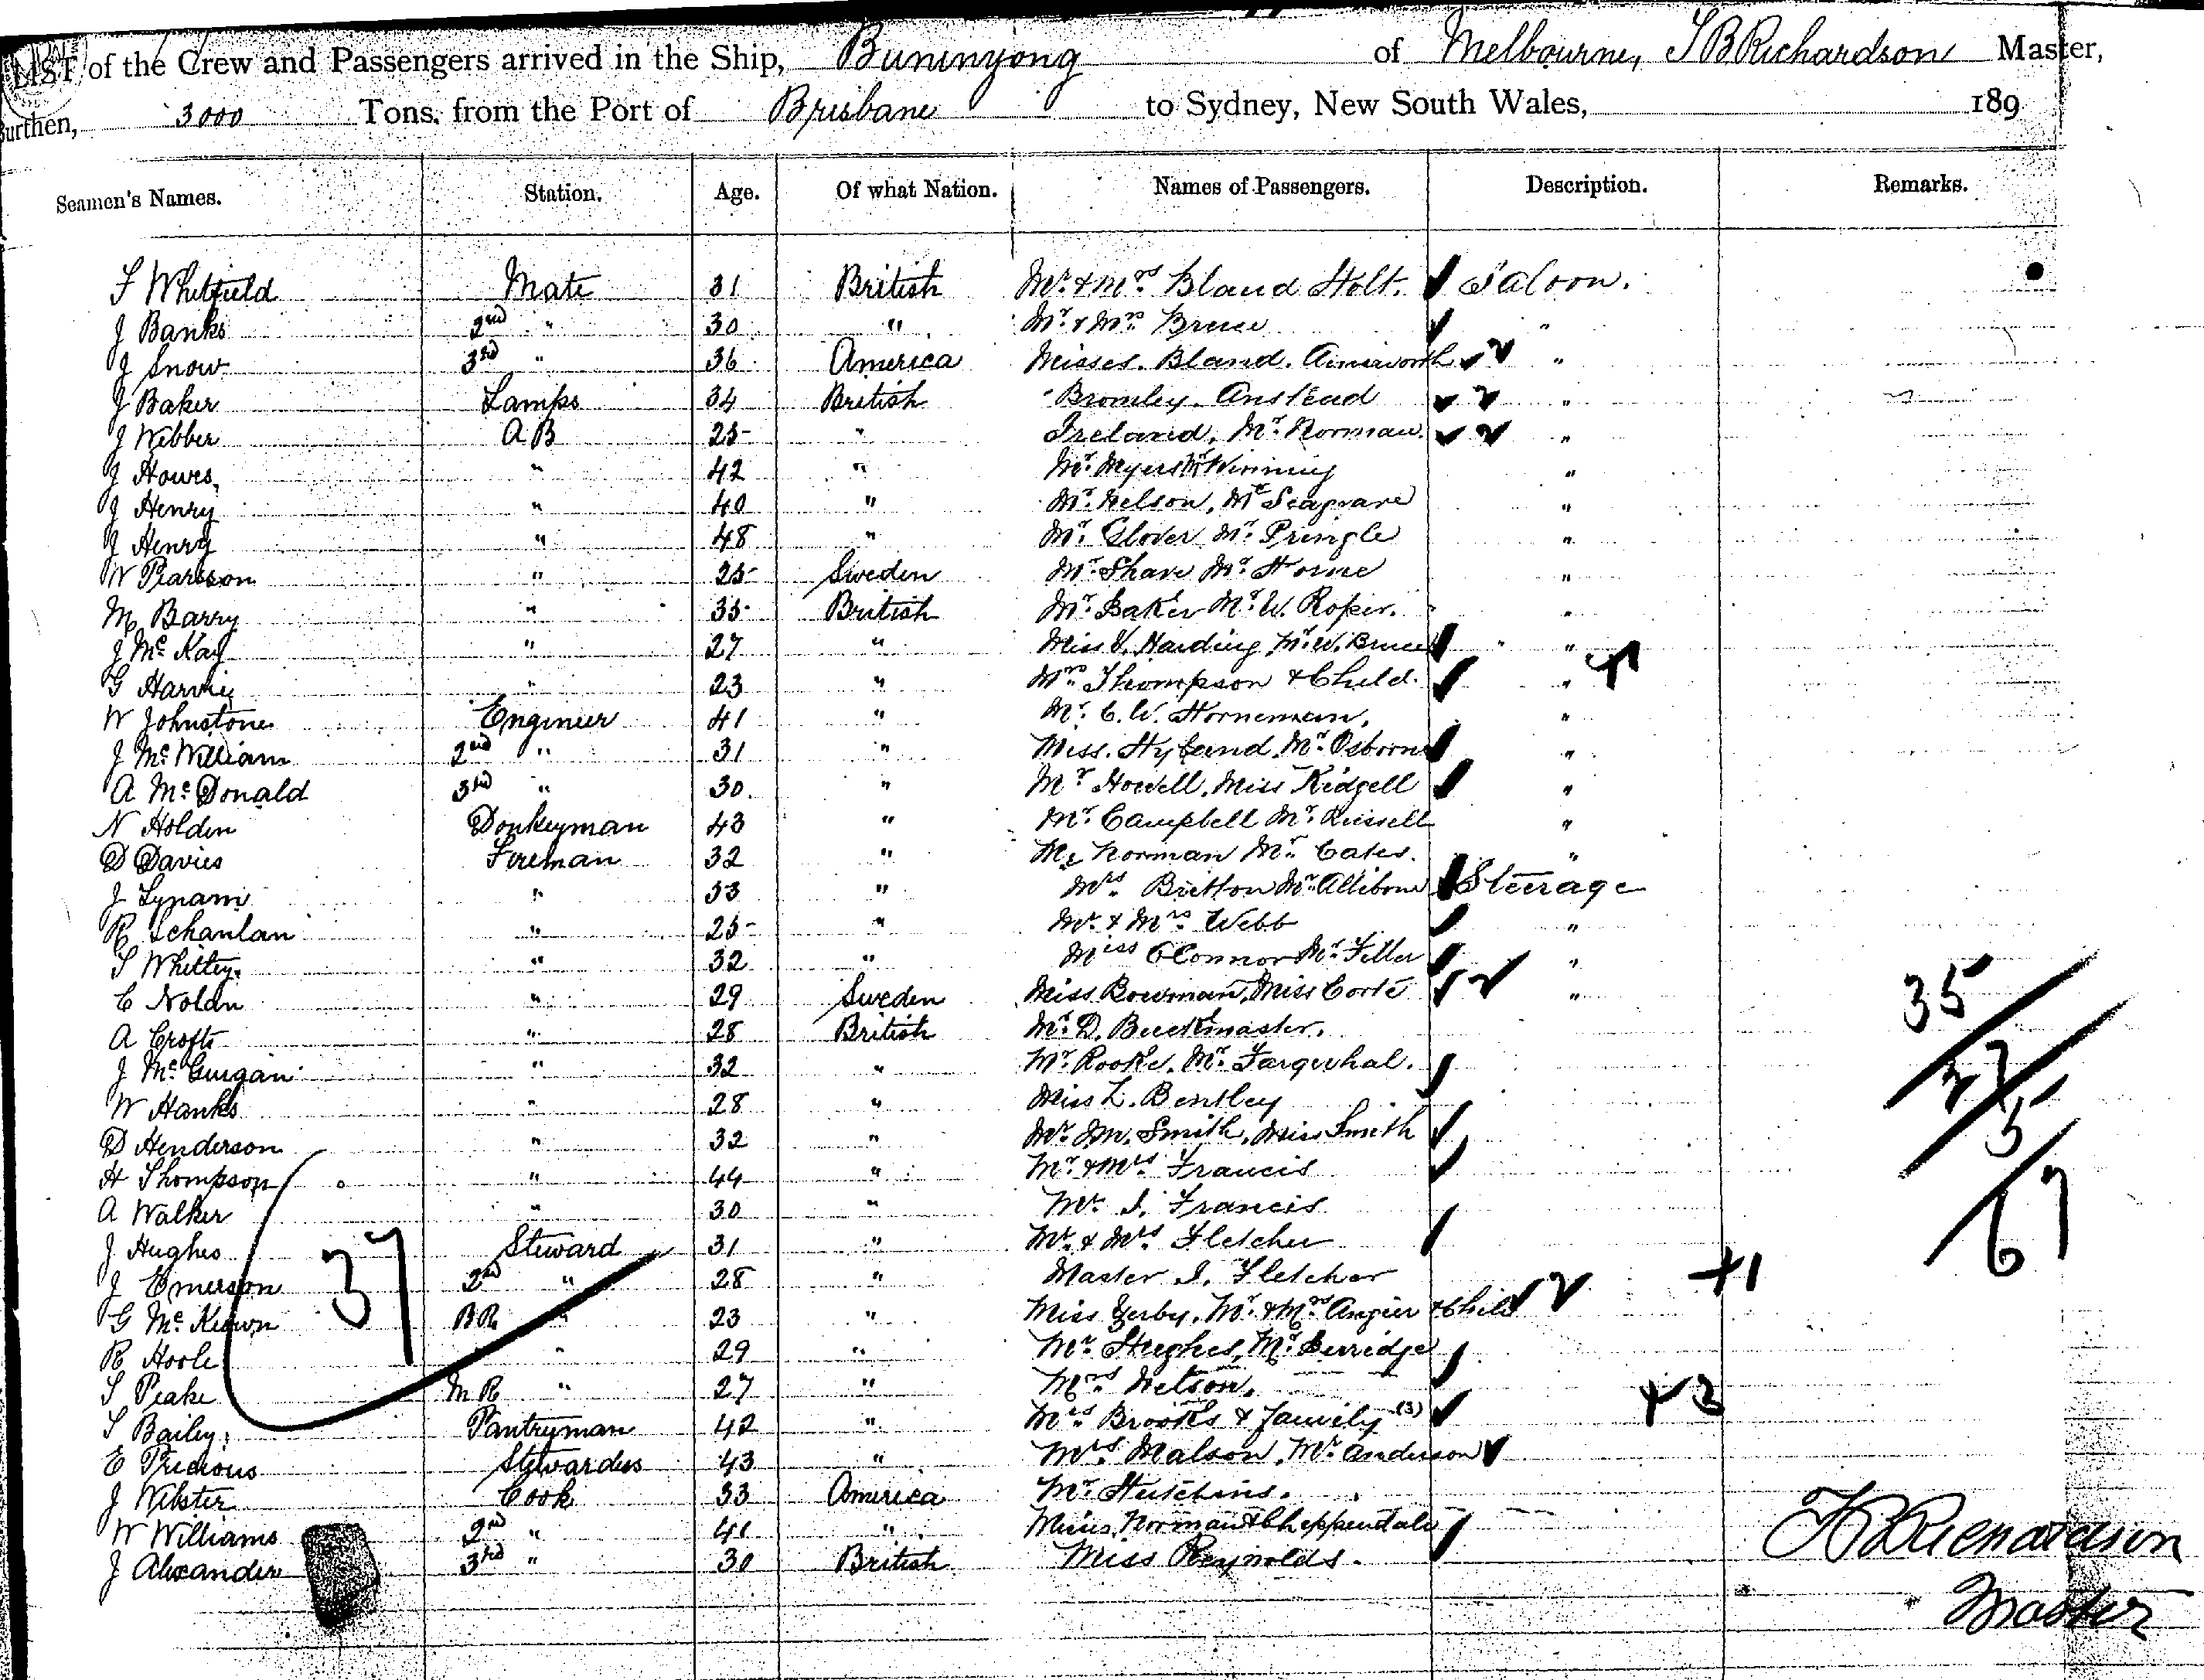 LIST of the Crew and Passengers arrived in the Ship, Buninyong of Melbourne, T B Richardson Master,
Burthen, 3000 Tons, from the Port of Brisbane to Sydney, New South Wales, 189
Seamen's Names. Station. Age. Of what Nation. Names of Passengers. Description. Remarks.
F Whitfield Mate 31 British Mr. & Mrs Bland Holt. Saloon.
J Banks 2nd " 30 " Mr. & Mrs. Bruce "
J Snow 3rd " 36 America Misses. Bland. Ainsworth 2 "
J Baker Lamps 34 British Bromley. Anstead 2 "
J Webber A B 25 " Ireland, Mr. Norman. 2 "
J Howes, " 42 " Mr. Myers Mr Winning "
J Henry " 40 " Mr. Nelson, Mr Seagrave "
J Henry " 48 " Mr. Glover Mr. Pringle "
W Pearsson " 25 Sweden Mr. Share Mr. Horne "
M Barry " 35 British Mr. Baker Mr. W. Roper. "
J Mc Kay " 27 " Miss V. Harding Mr. W. Bruce "
G Harvie " 23 " Mrs. Thompson & Child. " +1
W Johnstone Engineer 41 " Mr. C. W. Horneman. "
J Mc William 2nd " 31 " Miss. Hyland Mr. Osborne "
A Mc Donald 3rd " 30 " Mr Howell, Miss Kidgell "
N Holden Donkeyman 43 " Mr. Campbell Mr. Russell "
D Davies Fireman 32 " Mr Norman Mr. Cates. "
J Lynam " 33 " Mrs. Britton Mr. Allibone Steerage
R Schanlan " 25 " Mr. & Mrs Webb "
T Whitty. " 32 " Miss O'Connor Mr. Filler "
C Nolan " 29 Sweden Miss Bowman, Miss Corte 2 "
A Crofts " 28 British Mr. D. Buckmaster.
J Mc Guigan " 32 " Mr. Rooke. Mr. Farquhal.
W Hanks " 28 " Miss L. Bentley
D Henderson " 32 " Mr. M. Smith, Miss Smith
H Thompson " 44 " Mr. & Mrs. Francis
A Walker " 30 " Mr. J. Francis
J Hughes Steward 31 " Mr. & Mrs. Fletcher
J Emerson 2nd " 28 " Master J. Fletcher +1
G Mc Keown BR " 23 " Miss Zerby, Mr. & Mrs Angier & Child 2
R Hoole " 29 " Mr Hughes, Mr Berridge
T Peake M R " 27 " Mrs. Nelson.
T Bailey. Pantryman 42 " Mrs Brooks & family (3) +3
E Precious Stewardess 43 " Mrs. Malson. Mr. Anderson
J Webster Cook 33 America Mr. Hutchins.
W Williams 2nd " 41 " Misses Norman & Cheppendale
J Alexander 3rd " 30 British Miss Reynolds.
37
35
27
5
67
T B Richardson
Master